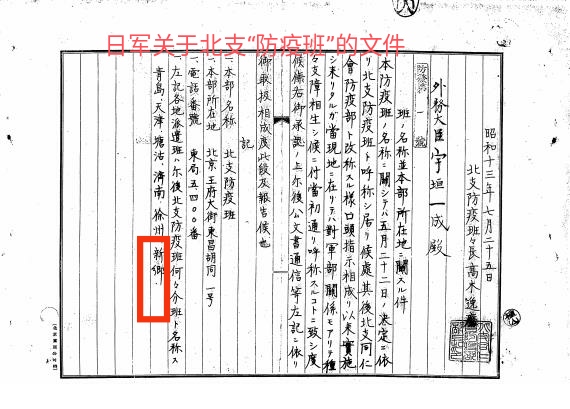 日军关于北支“防疫班”的文件
防疫発 一 號
昭和十三年七月二十五日
北支防疫班々長高木逸磨
外務大臣宇垣一成殿
班ノ名称並本部所在地ニ関スル件
本防疫班ノ名称ニ関シテハ五月二十二日ノ決定ニ依
リ北支防疫班ト呼称シ居リ候處其後北支同仁
會防疫部ト改称スル様口頭指示相成リ以来實施
シ来リタルガ當現地ニ在リテハ對軍部関係モアリテ種
々支障相生シ候ニ付當初通リ呼称スルコトニ致シ度
候條右御承認ノ上尓後公文書通信等左記ニ依リ
御取扱相成度此段及報告候也
記
一、本部名称 北支防疫班
一、本部所在地 北京王府大街東昌胡同一号
一、電話番號 東局五四〇〇番
一、左記各地派遣班ハ尓後北支防疫班何々分班ト名称ス
青島、天津、塘沽、濟南、徐州、新鄉、